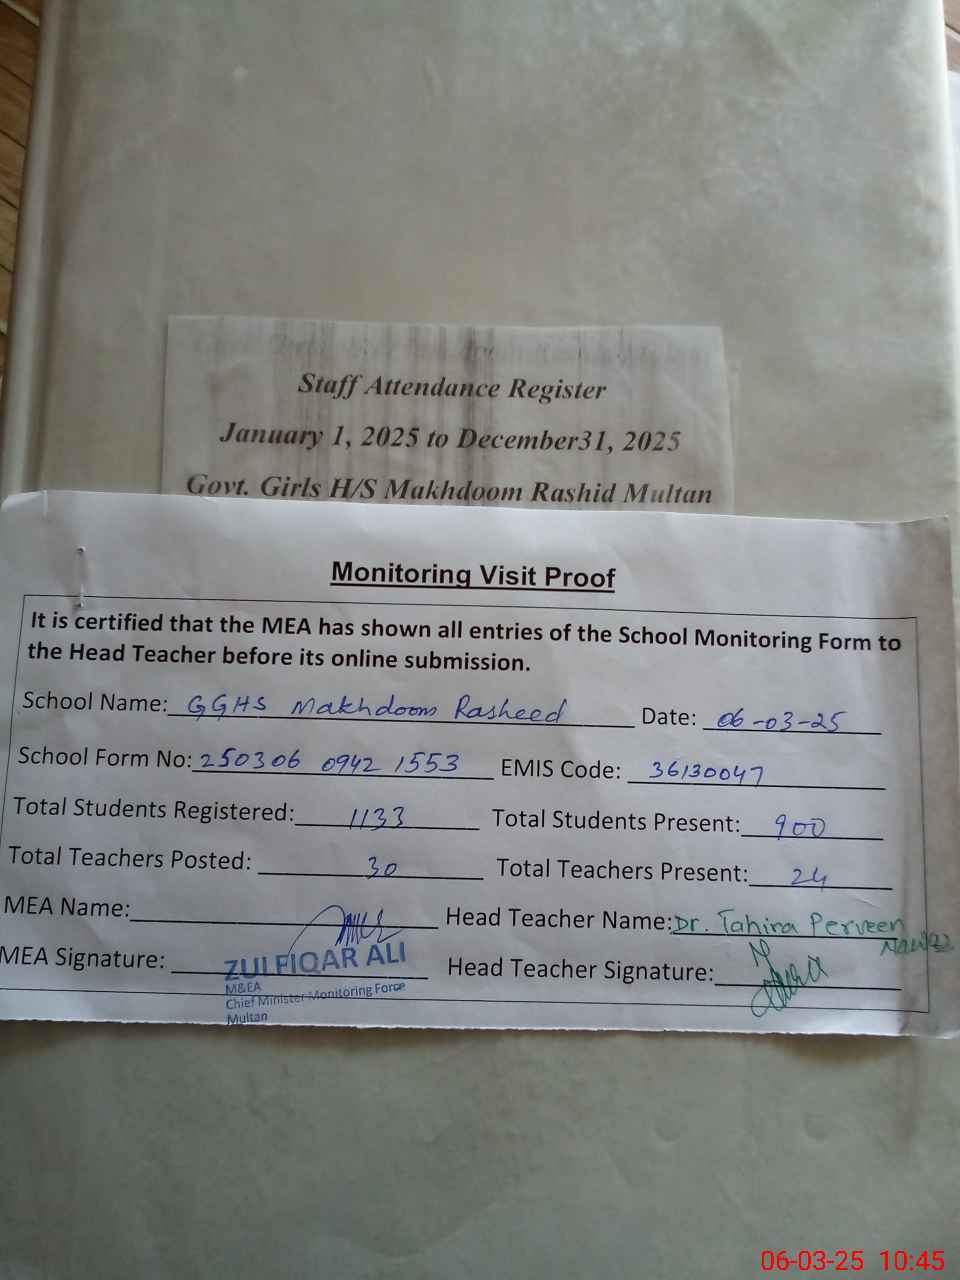 Staff Attendance Register
January 1, 2025 to December31, 2025
Govt. Girls H/S Makhdoom Rashid Multan
Monitoring Visit Proof
It is certified that the MEA has shown all entries of the School Monitoring Form to
the Head Teacher before its online submission.
School Name: GGHS Makhdoom Rasheed Date: 06-03-25
School Form No: 250306 0942 1553 EMIS Code: 36130047
Total Students Registered: 1133 Total Students Present: 900
Total Teachers Posted: 30 Total Teachers Present: 24
MEA Name: Head Teacher Name: Dr. Tahira Perveen
Nawaz
MEA Signature: ZULFIQAR ALI Head Teacher Signature:
M&EA
Chief Minister Monitoring Force
Multan
06-03-25 10:45